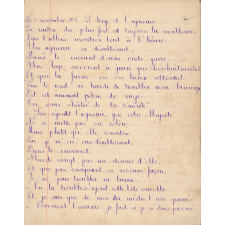 Le loup et l'agneau
La raison du plus fort est toujours la meilleure
Nous l'allons montrer tout à l'heure
Un agneau se désaltérait
Dans le courant d'une onde pure
Un loup survient à jeun qui cherchait
Et que la faim en ces lieux attirait
Qui te rend si hardi de troubler mon breuvage
Dit cet animal plein de rage
Tu seras châtié de ta témérité
Sire répond l'agneau, que votre Majesté
Ne se mette pas en colère
Mais plutôt qu'elle considère
Que je me vas désaltérant
Dans le courant
Plus de vingt pas au-dessous d'elle
Et que par conséquent en aucune façon
Je ne puis troubler sa boisson
Tu la troubles reprit cette bête cruelle
Et je sais que de moi tu médis l'an passé
Comment l'aurais-je fait si je n'étais pas né